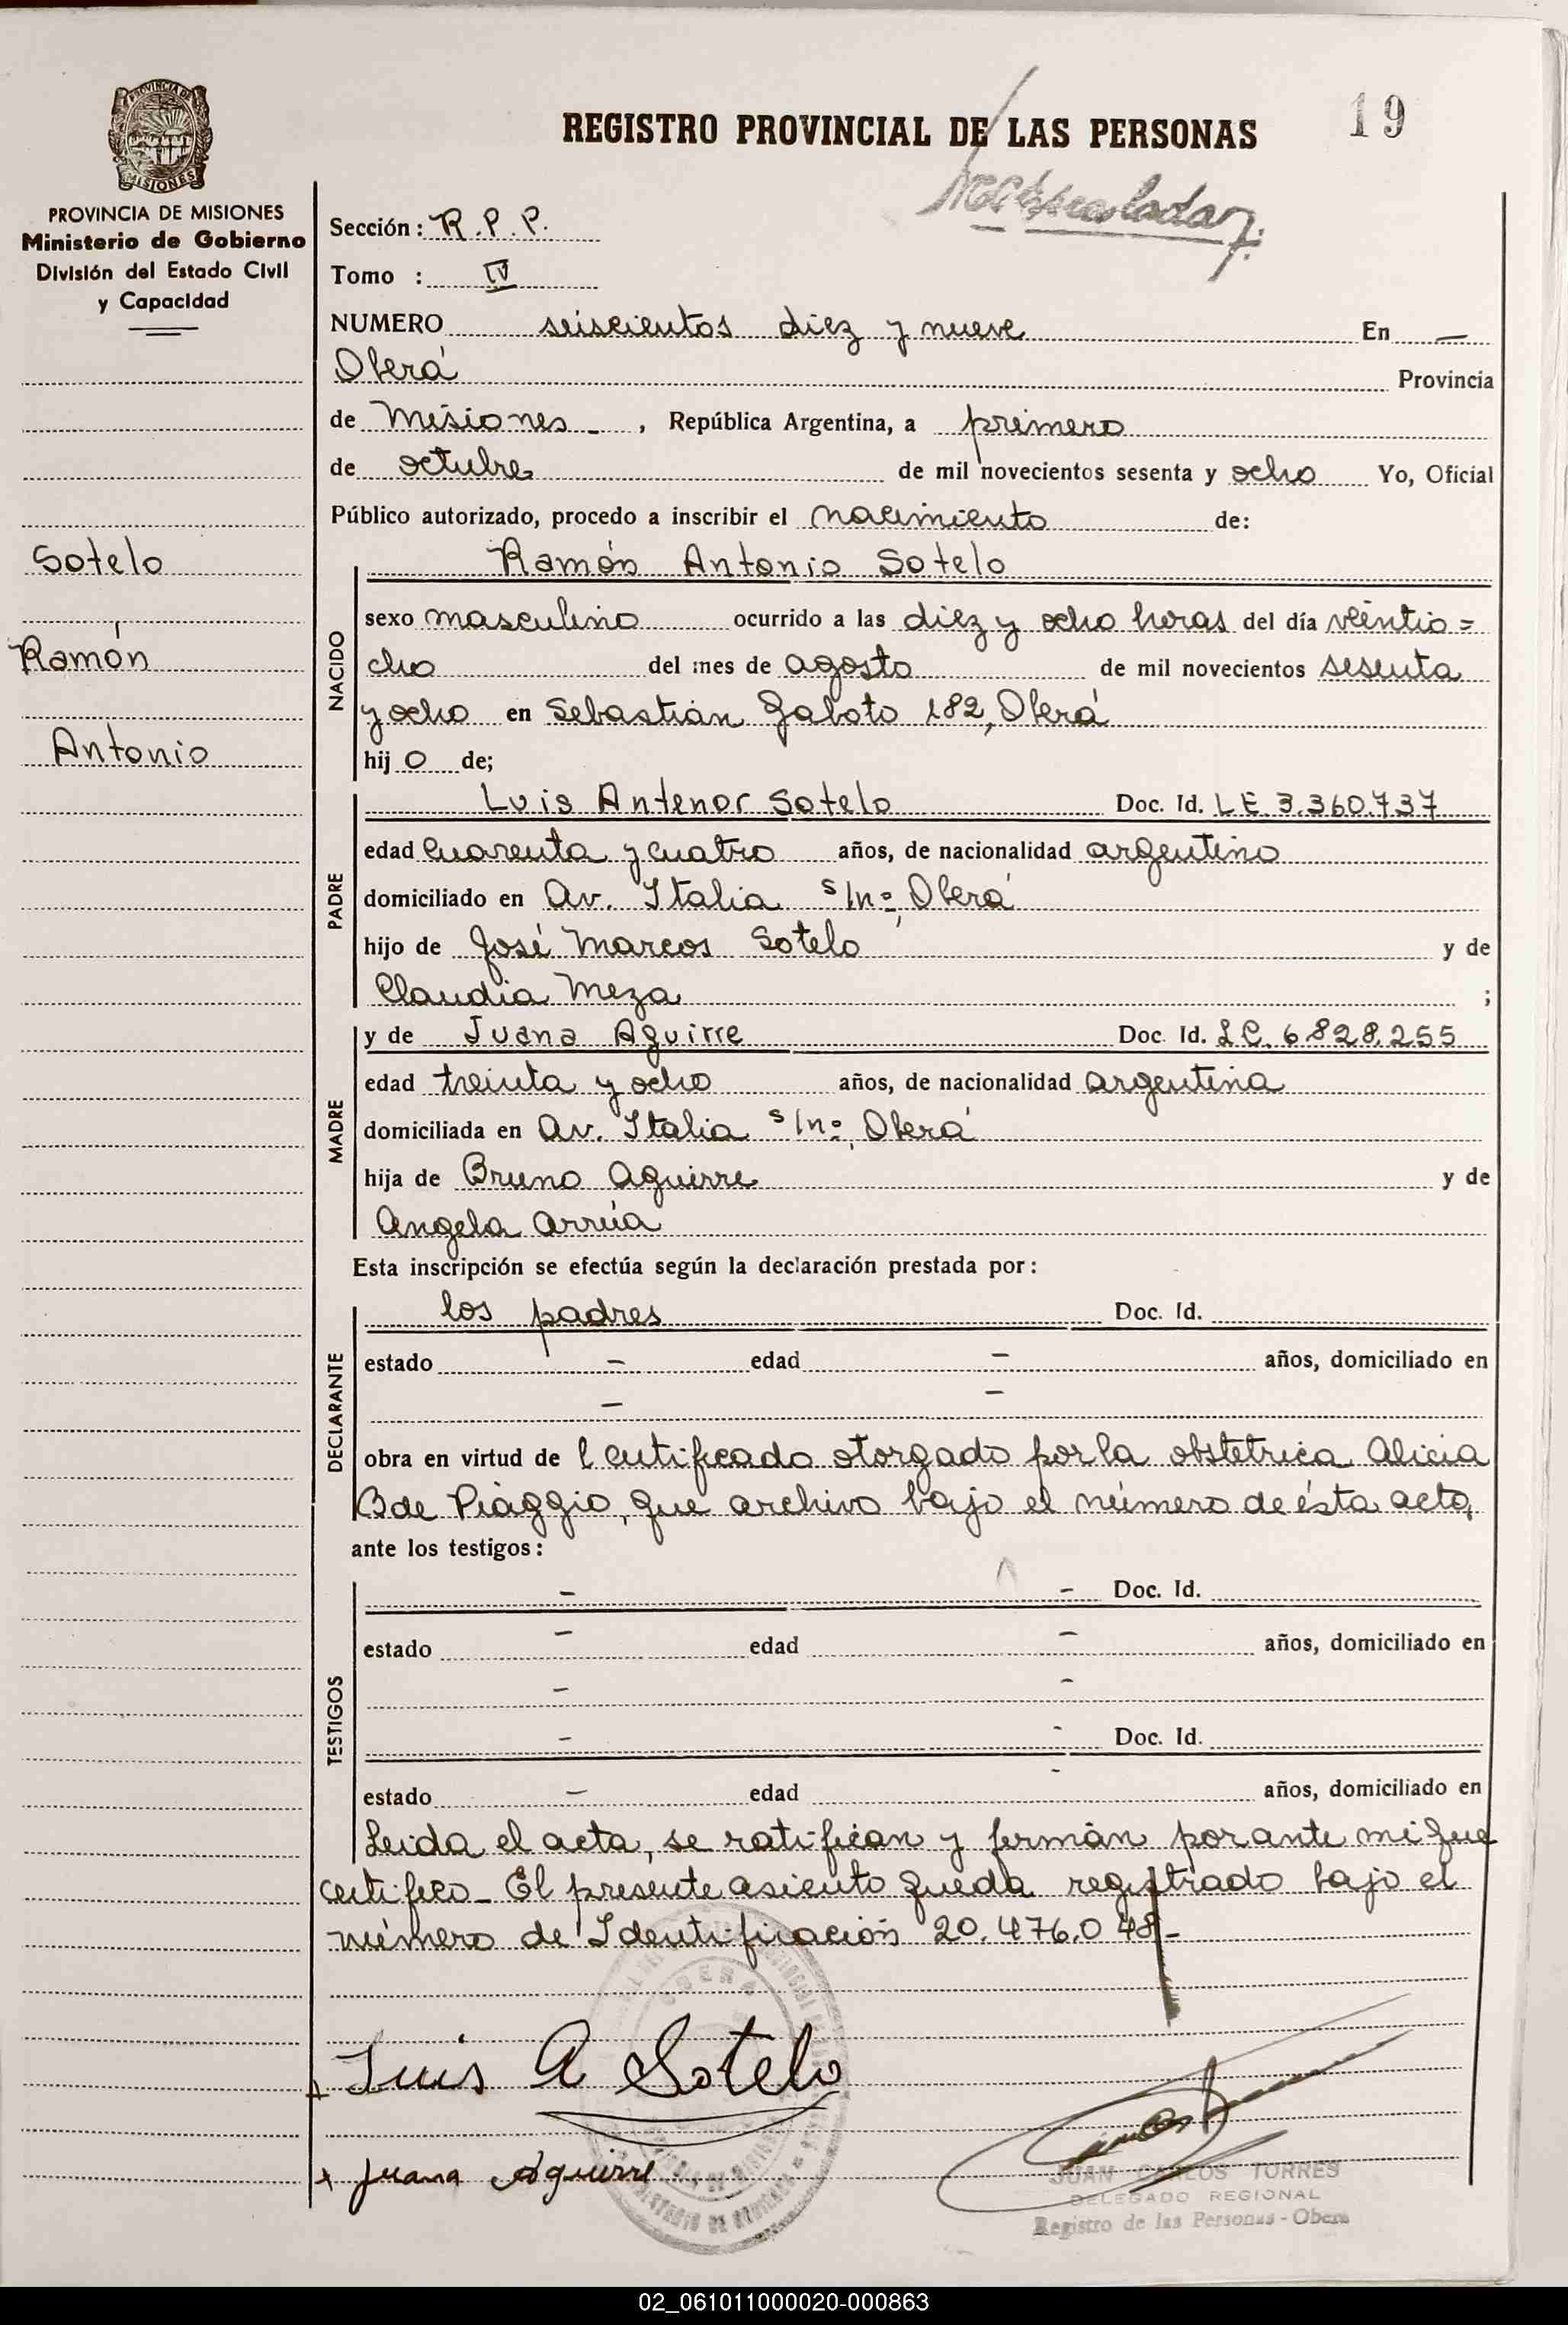 REGISTRO PROVINCIAL DE LAS PERSONAS
19
PROVINCIA DE
MISIONES
PROVINCIA DE MISIONES
Ministerio de Gobierno
División del Estado Civil
y Capacidad
Sotelo
Ramón
Antonio
Sección: R.P.P.
Tomo : IV
NUMERO seiscientos diez y nueve En —
Oberá Provincia
de Misiones - , República Argentina, a primero
de octubre de mil novecientos sesenta y ocho Yo, Oficial
Público autorizado, procedo a inscribir el nacimiento de:
NACIDO
Ramón Antonio Sotelo
sexo masculino ocurrido a las diez y ocho horas del día veintio=
cho del mes de agosto de mil novecientos sesenta
y ocho en Sebastián Gaboto 182, Oberá
hij o de;
PADRE
Luis Antenor Sotelo Doc. Id. LE 3.360.737
edad cuarenta y cuatro años, de nacionalidad argentino
domiciliado en Av. Italia s/nº, Oberá
hijo de José Marcos Sotelo y de
Claudia Meza ;
MADRE
y de Juana Aguirre Doc. Id. LC. 6.828.255
edad treinta y ocho años, de nacionalidad argentina
domiciliada en Av. Italia s/nº, Oberá
hija de Bruno Aguirre y de
Angela Arrúa
Esta inscripción se efectúa según la declaración prestada por:
DECLARANTE
los padres Doc. Id.
estado - edad - años, domiciliado en
- -
obra en virtud de l certificado otorgado por la obstetrica Alicia
B de Piaggio, que archivo bajo el número de ésta acta,
ante los testigos:
TESTIGOS
- - Doc. Id.
estado - edad - años, domiciliado en
- -
- - Doc. Id.
estado - edad - años, domiciliado en
Leida el acta, se ratifican y firmán por ante mi que
certifico - El presente asiento queda registrado bajo el
número de Identificación 20.476.048 -
Luis A Sotelo
x Juana Aguirre
JUAN CARLOS TORRES
DELEGADO REGIONAL
Registro de las Personas - Obera
02_061011000020-000863